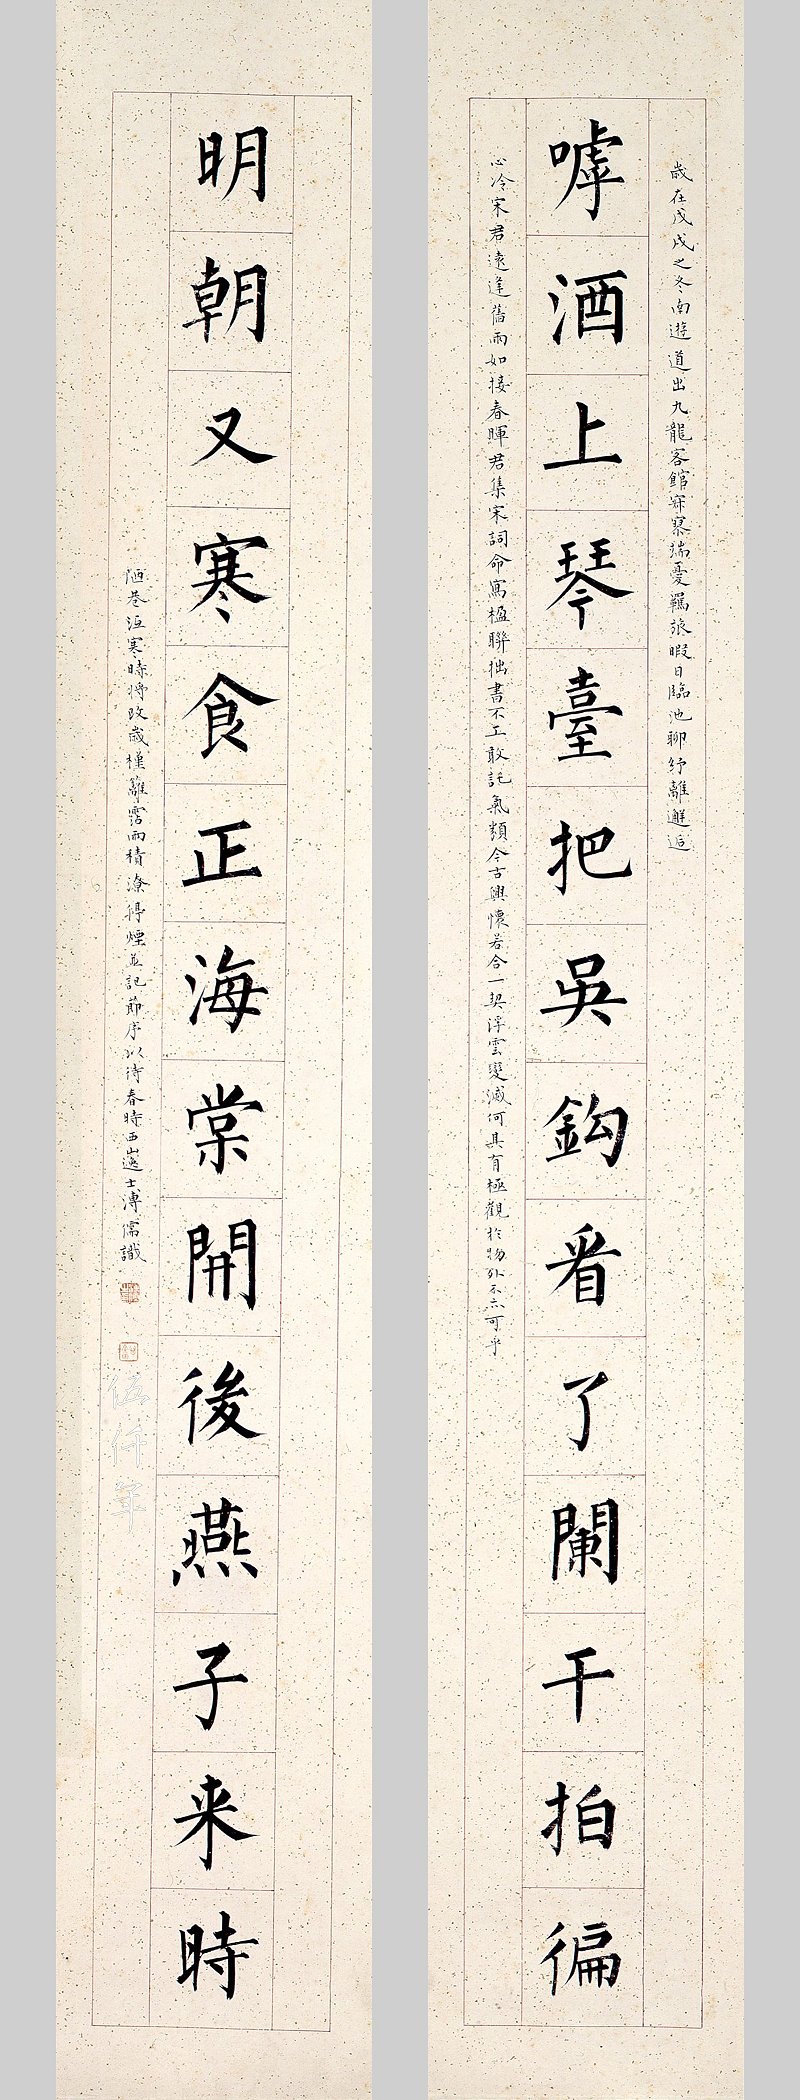 歲在戊戌之冬南遊道出九龍客館寂寥端憂羈旅暇日臨池聊紓離邂逅
嘑酒上琴臺把吳鉤看了闌干拍徧
心冷宋君遠逢舊雨如接春暉君集宋詞命寫楹聯拙書不工敢託氣類今古興懷若合一契浮雲變滅何其有極觀於物外不亦可乎
明朝又寒食正海棠開後燕子来時
陋巷沍寒時將改歲槿籬霑雨積潦得煙並記節序以待春時西山逸士溥儒識
伍仟年